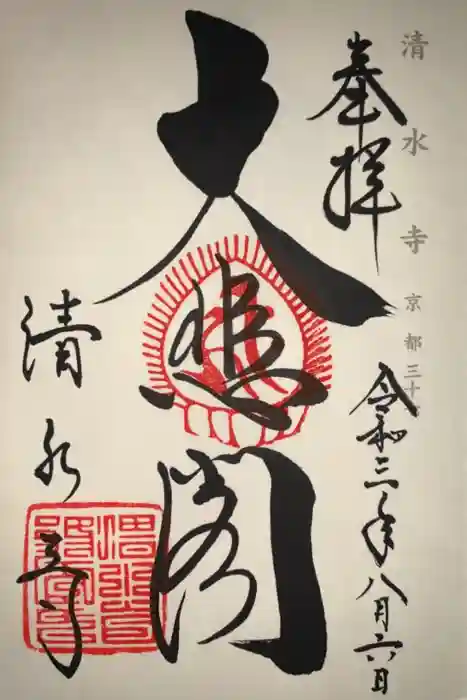 清水寺 京都三十
奉拝
令和三年八月六日
大悲閣
清水寺